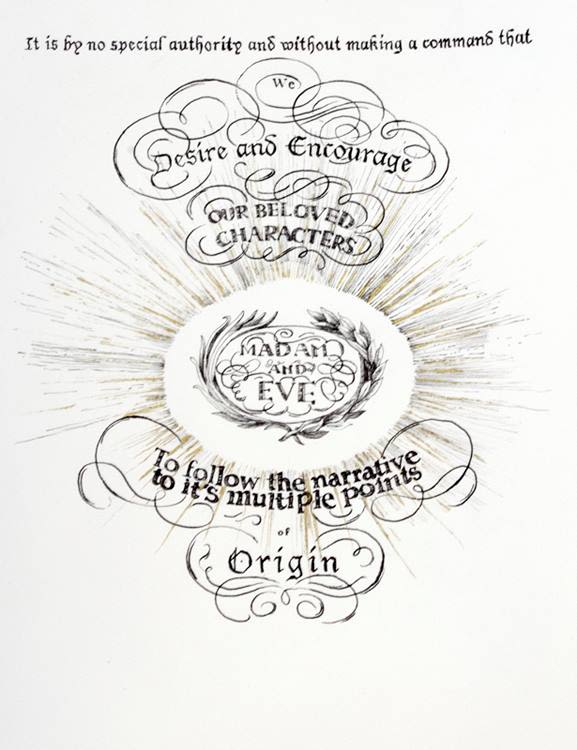 It is by no special authority and without making a command that
We
Desire and Encourage
OUR BELOVED
CHARACTERS
MADAM
AND
EVE
To follow the narrative
to it's multiple points
of
Origin